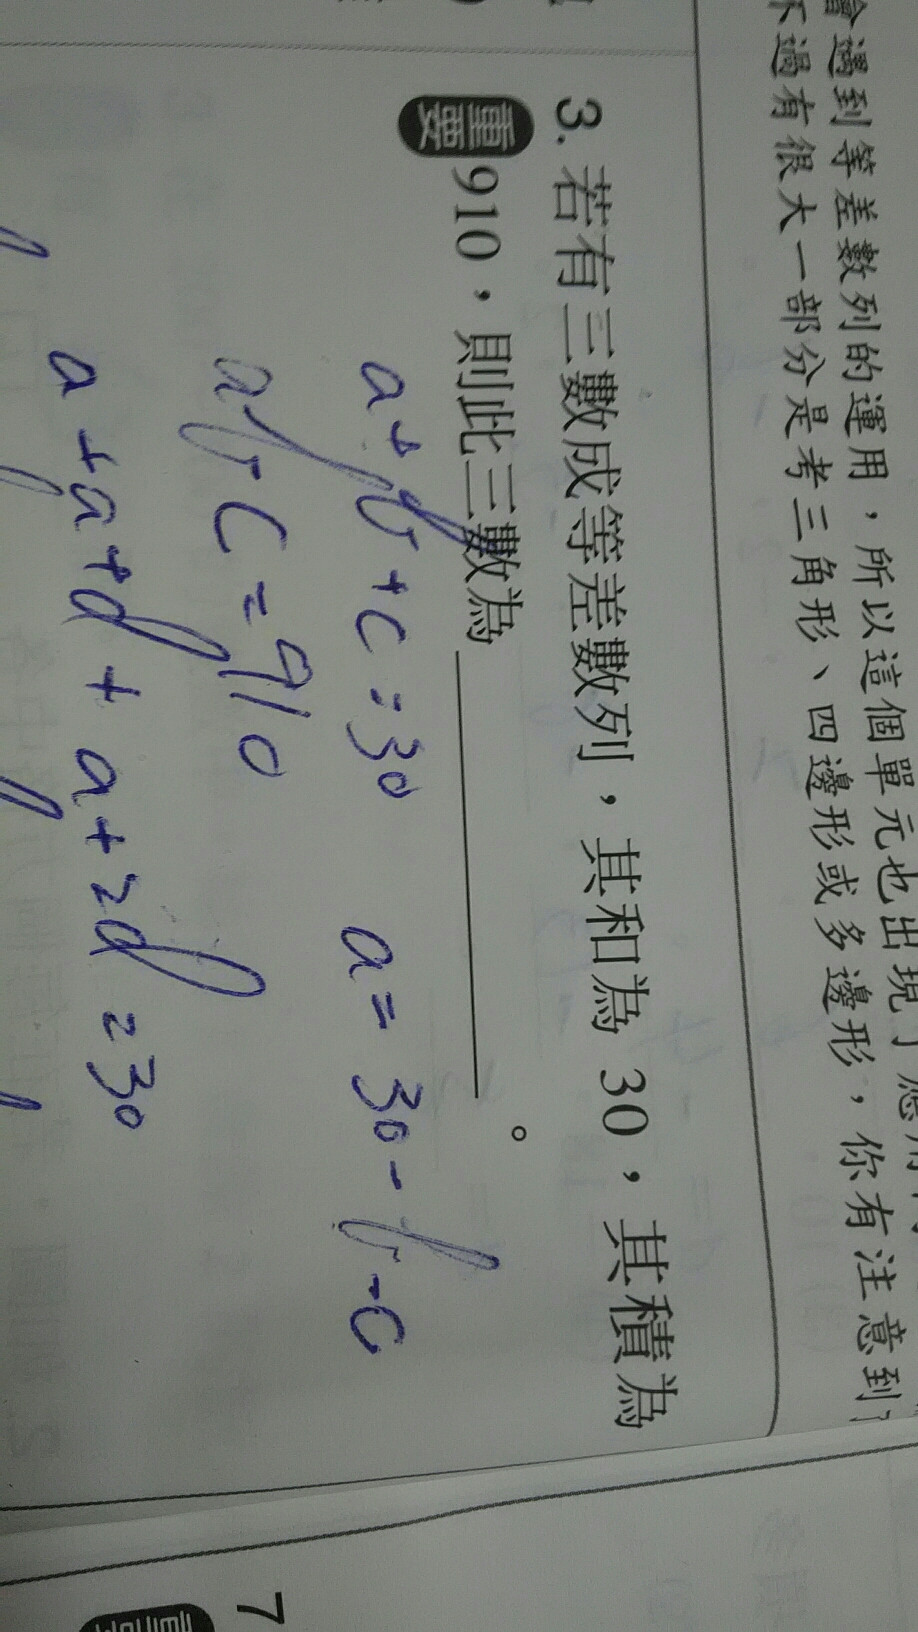 會遇到等差數列的運用，所以這個單元也出現了應用
不過有很大一部分是考三角形、四邊形或多邊形，你有注意到
3. 若有三數成等差數列，其和為 30，其積為
重要 910，則此三數為 。
a+b+c=30 a=30-b-c
abc=910
a+a+d+a+2d=30
7